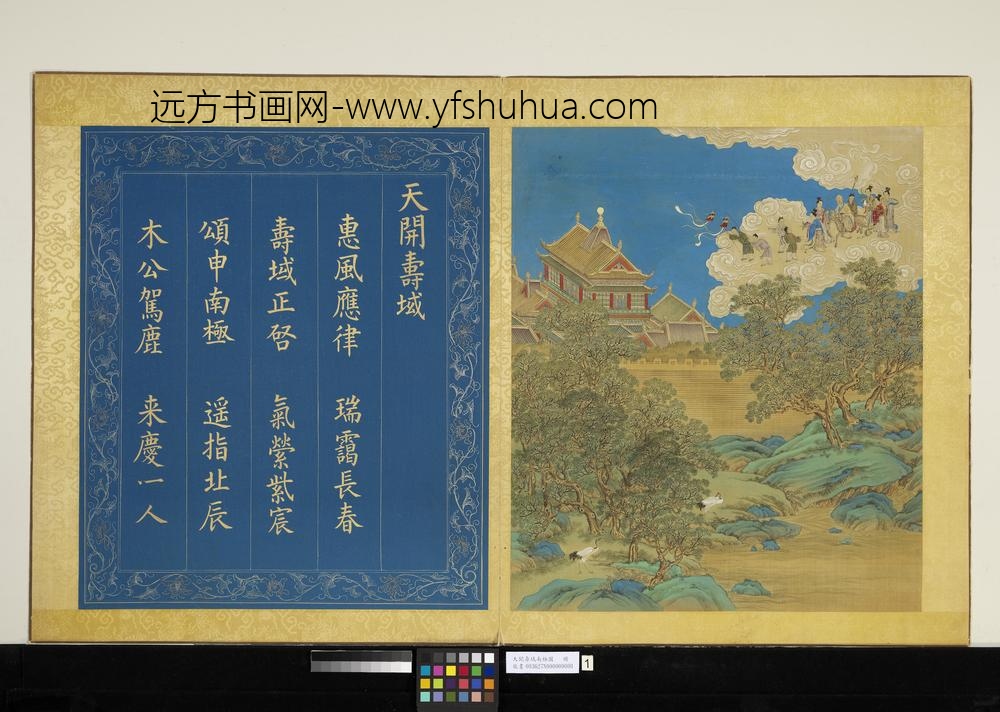 远方书画网-www.yfshuhua.com
天開壽域
惠風應律 瑞靄長春
壽域正啓 氣縈紫宸
頌申南極 遥指北辰
木公駕鹿 来慶一人
1